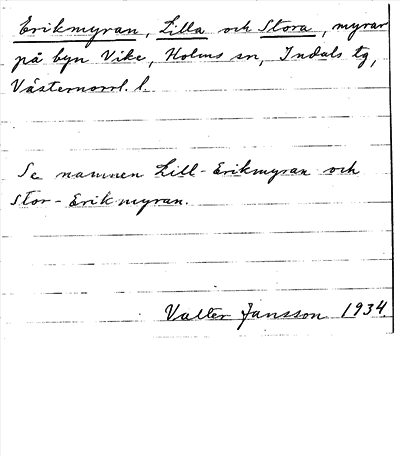 Erikmyran, Lilla och Stora, myrar
på byn Vike, Holms sn, Indals tg,
Västernorrl. l.
Se namnen Lill-Erikmyran och
Stor-Erikmyran.
Valter Jansson 1934.